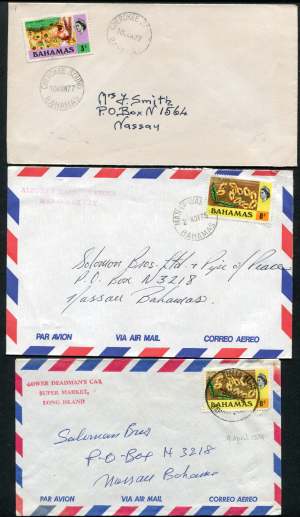 3c
BAHAMAS
CHEROKEE SOUND
10 JAN 77
BAHAMAS
CHEROKEE SOUND
10 JAN 77
Mrs J. Smith
P.O. Box N 1564
Nassau
MAN-O-WAR CAY
BAHAMAS
8c
2 NOV 76
BAHAMAS
Solomon Bros. Ltd. + Pipe of Peace
P.O. Box N3218
Nassau Bahamas.
PAR AVION VIA AIR MAIL CORREO AEREO
LOWER DEADMAN'S CAY
SUPER MARKET,
LONG ISLAND
BAHAMAS
8c
April 1974
Soloman Bros
P-O-Box N 3218
Nassau Bahama
PAR AVION VIA AIR MAIL CORREO AEREO